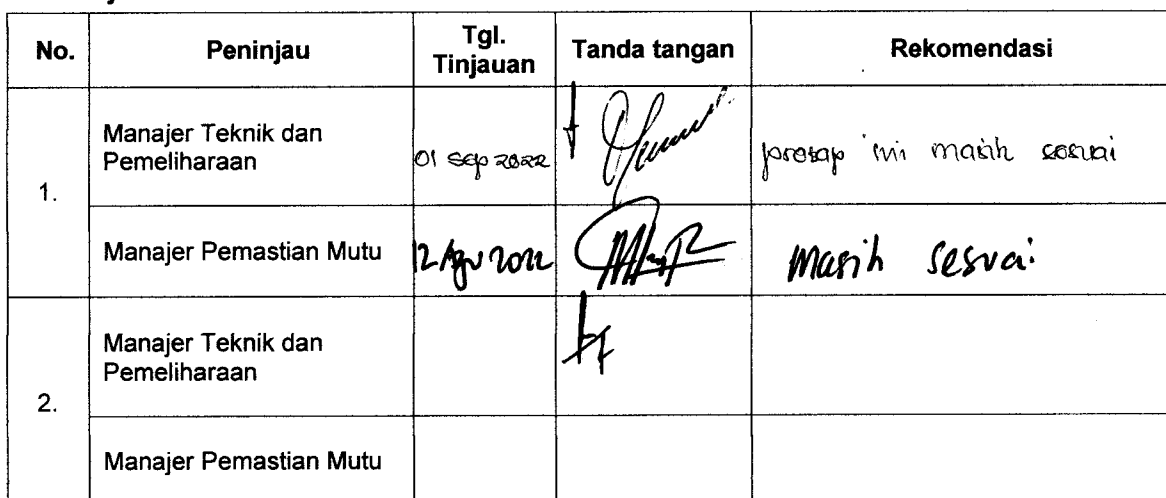 No. Peninjau Tgl. Tinjauan Tanda tangan Rekomendasi
1. Manajer Teknik dan Pemeliharaan 01 sep 2022 protap ini masih sesuai
Manajer Pemastian Mutu 12 Agu 2022 Masih sesuai
2. Manajer Teknik dan Pemeliharaan
Manajer Pemastian Mutu